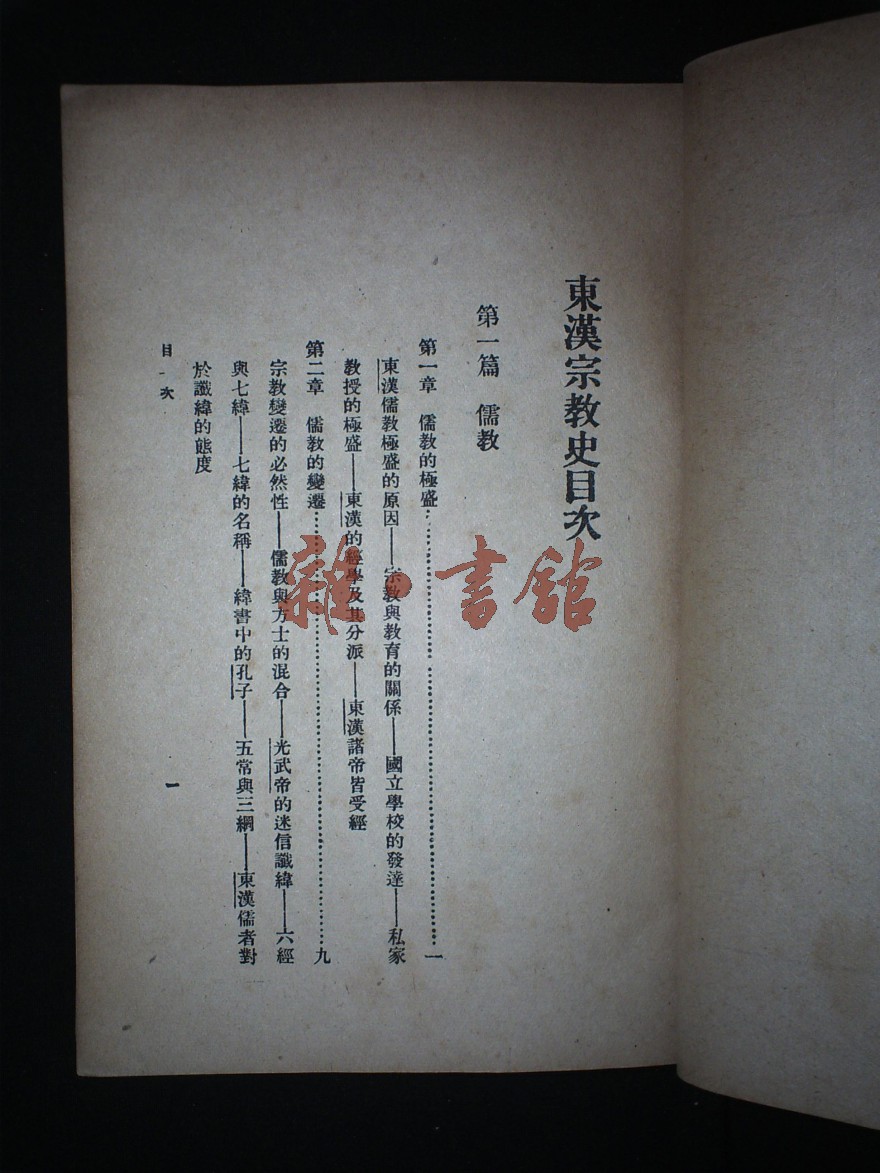 東漢宗教史目次
第一篇　儒教
第一章　儒教的極盛……………………一
東漢儒教極盛的原因——宗教與教育的關係——國立學校的發達——私家
教授的極盛——東漢的經學及其分派——東漢諸帝皆受經
第二章　儒教的變遷……………………九
宗教變遷的必然性——儒教與方士的混合——光武帝的迷信讖緯——六經
與七緯——七緯的名稱——緯書中的孔子——五常與三綱——東漢儒者對
於讖緯的態度
目次
一
雜·書館